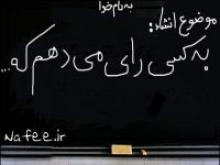 به نام خدا
موضوع انشاء:
به کسی رای می دهم که...
Nafee.ir